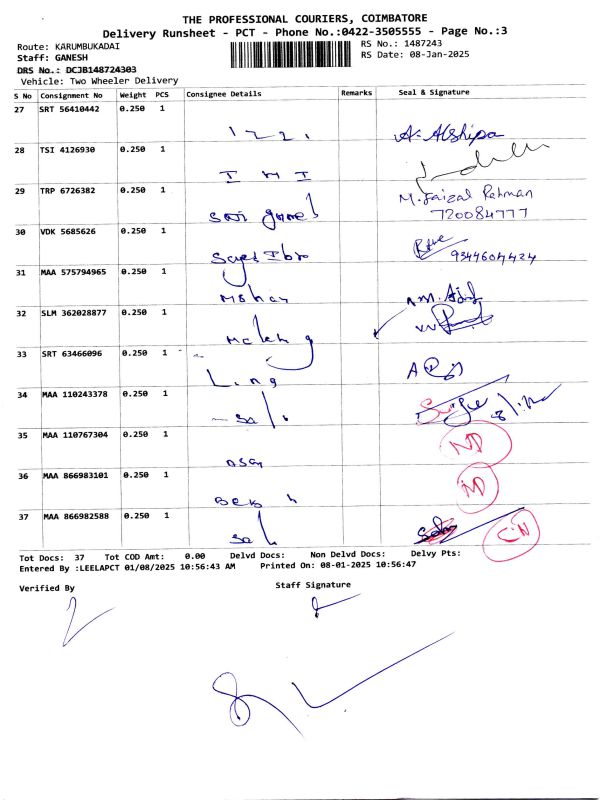 THE PROFESSIONAL COURIERS, COIMBATORE
Delivery Runsheet - PCT - Phone No.:0422-3505555 - Page No.:3
Route: KARUMBUKADAI
RS No.: 1487243
Staff: GANESH
RS Date: 08-Jan-2025
DRS No.: DCJB148724303
Vehicle: Two Wheeler Delivery
S No Consignment No Weight PCS Consignee Details Remarks Seal & Signature
27 SRT 56410442 0.250 1
A. Alshipa
28 TSI 4126930 0.250 1
29 TRP 6726382 0.250 1
M. Faizal Rehman
720084777
30 VDK 5685626 0.250 1
9344604424
31 MAA 575794965 0.250 1
Mohan
32 SLM 362028877 0.250 1
33 SRT 63466096 0.250 1
Ling
34 MAA 110243378 0.250 1
35 MAA 110767304 0.250 1
ND
36 MAA 866983101 0.250 1
ND
37 MAA 866982588 0.250 1
CN
Tot Docs: 37 Tot COD Amt: 0.00 Delvd Docs: Non Delvd Docs: Delvy Pts:
Entered By :LEELAPCT 01/08/2025 10:56:43 AM Printed On: 08-01-2025 10:56:47
Verified By Staff Signature